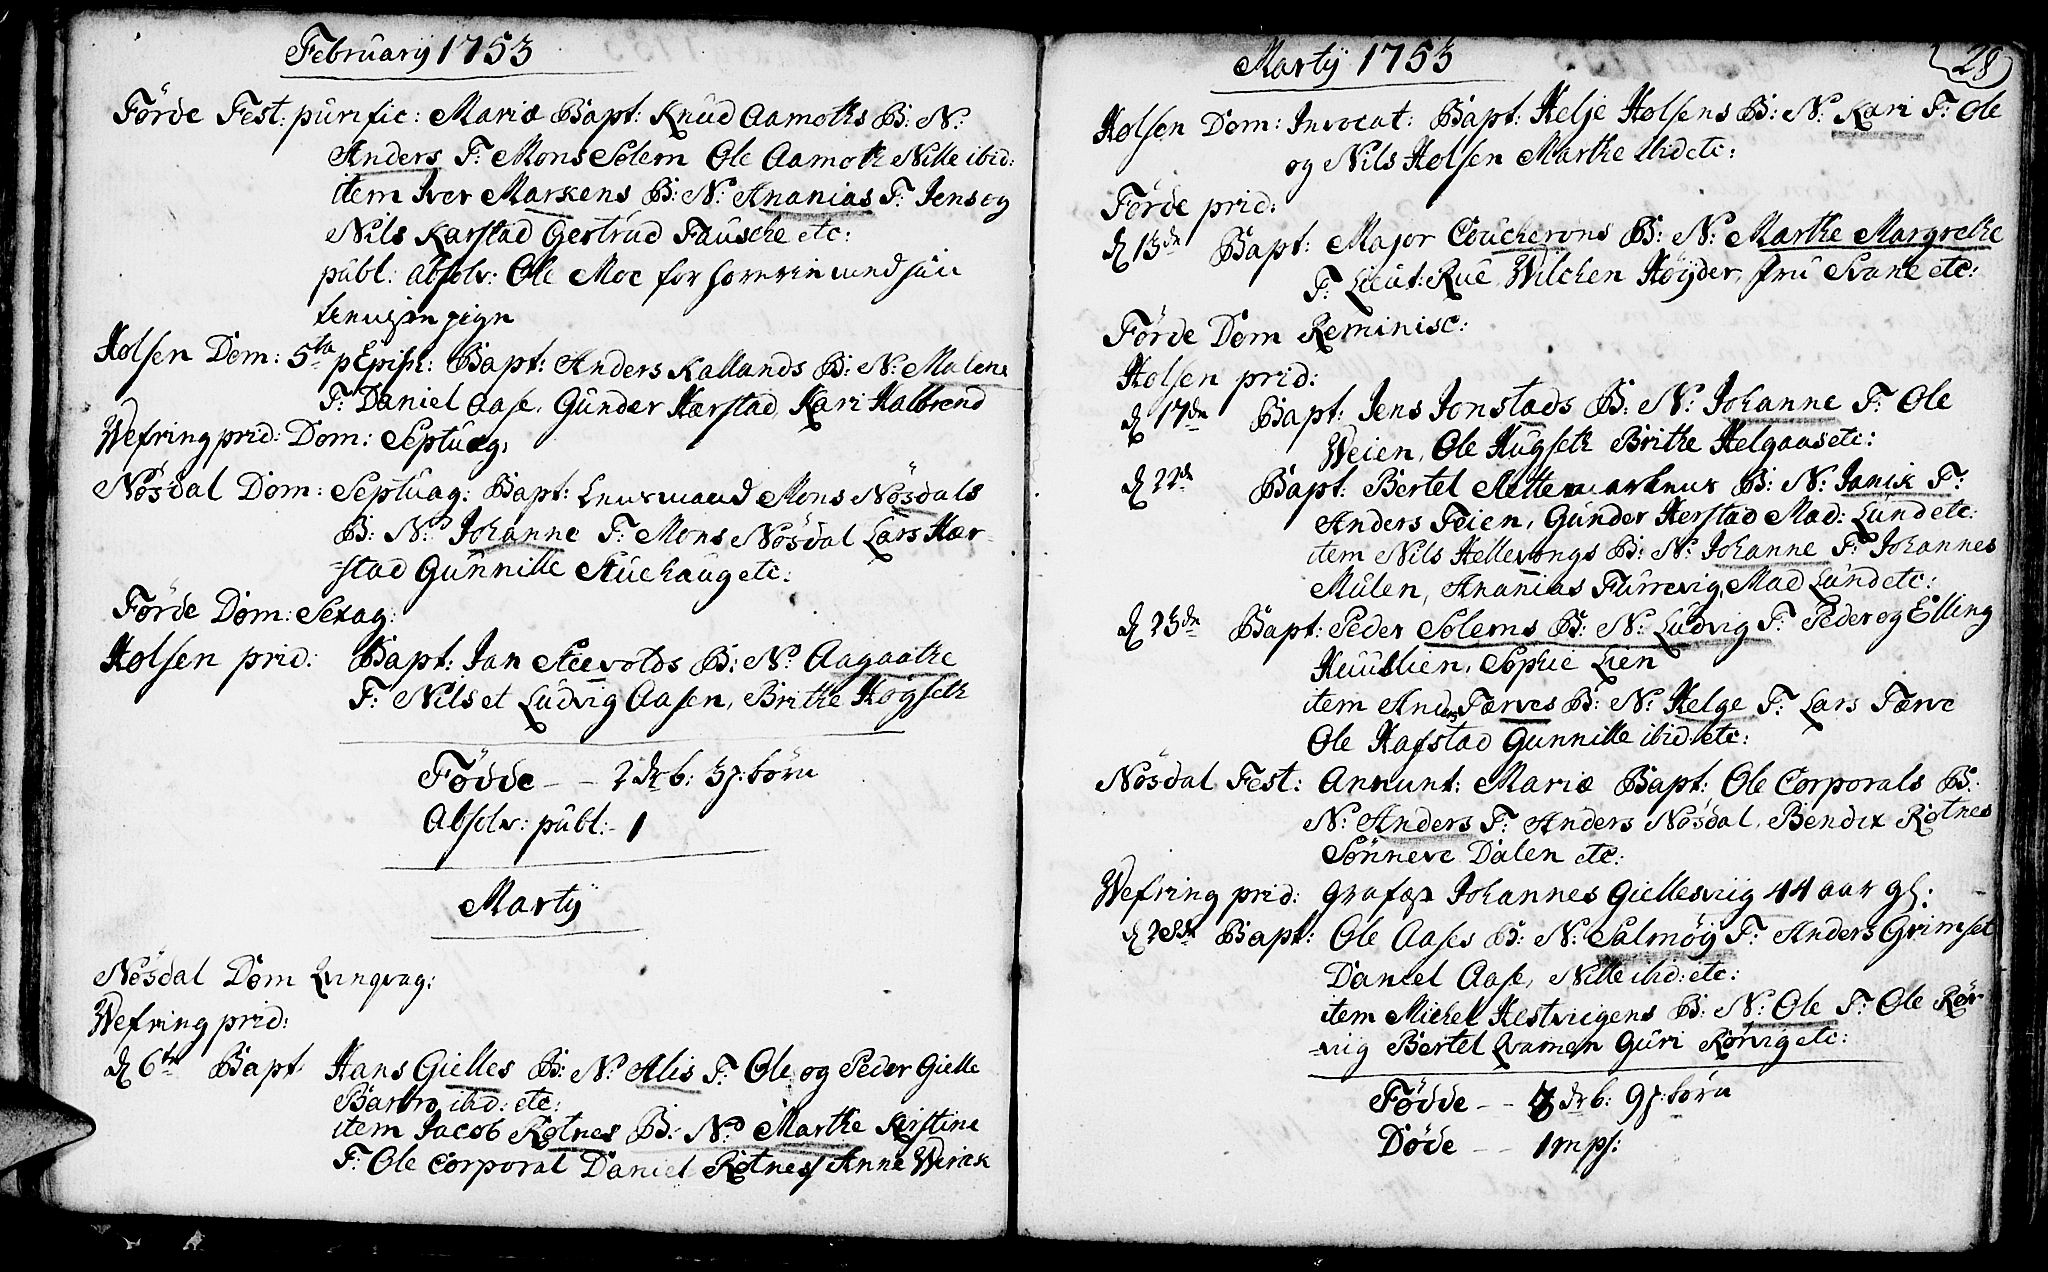 Februarÿ 1753
Förde Fest: purific: Mariæ Bapt: Knud Aamoths B: N:
Anders F: Mons Solem Ole Aamoth Nille ibid:
item Iver Markens B: N: Ananias F: Jens og
Nils Karstad Gertrud Fausche etc:
publ: absolv: Ole Moe for med sin
pige
Holsen Dom: 5ta p Epiph: Bapt: Anders Kallands B: N: Malene
F: Daniel Aase, Gunder Hærstad, Kari Halbrend
Wefring prid: Dom: Septuag:
Nösdal Dom: Septuag: Bapt: Lensmand Mons Nösdals
B: N: Johanne F: Mons Nösdal Lars Hær-
-stad Gunnille Stuehaug etc:
Förde Dom: Sexag:
Holsen prid: Bapt: Jan B: N: Aagaathe
F: Nils et Ludvig Aasen, Brithe Hogseth
Födde - - 2 drb: 3 p: börn
Absolv: publ: - 1
Martÿ
Nösdal Dom Qvinqvag:
Wefring prid:
d 6te Bapt Hans Gielles B: N: Alis F: Ole og Peder Gielle
Barbro ibid: etc:
item Jacob Rotnes B: N: Marthe Kirstine
F: Ole Corporal Daniel Rotnes Anne Wirak
Martÿ 1753
28
Holsen Dom: Invocat: Bapt: Helje Holsens B: N: Kari F: Ole
og Nils Holsen Marthe ibid etc:
Förde prid:
d 13de Bapt: Major Coucherons B: N: Marthe Margrethe
F: Lieut: Rue, Wilchen Höyder, fru Svane etc:
Förde Dom Reminisc:
Holsen prid:
d 17de Bapt: Jens Jonstads B: N: Johanne F: Ole
Weien, Ole Hugseth Brithe Helgaas etc:
d 22de Bapt: Bertel B: N: Janik F:
Anders Feien, Gunder Herstad Mad: Lund etc:
item Nils Hellevongs B: N: Johanne F: Johannes
Mulen, Ananias Furrevig, Mad Lund etc:
d 23de Bapt: Peder Solems B: N: Ludvig F: Peder og Elling
Huuslien, Sophie Lien
item Anders Færves B: N: Helge F: Lars Færve
Ole Hafstad Gunnille ibid: etc:
Nösdal Fest: Annunt: Mariæ Bapt: Ole Corporals B:
N: Anders F: Anders Nösdal, Bendix Rotnes
Sönneve Dalen etc:
Wefring prid: Grafæst Johannes Giellesviig 44 aar gl:
d 28de Bapt: Ole Aases B: N: Salmöy F: Anders Grimset
Daniel Aase, Nille ibid: etc:
item Michel Hestviigens B: N: Ole F: Ole Rör-
-vig Bertel Qvamen Guri Rörvig etc:
Födde - - 3 drb: 9 p: börn
Döde - - 1 mps: